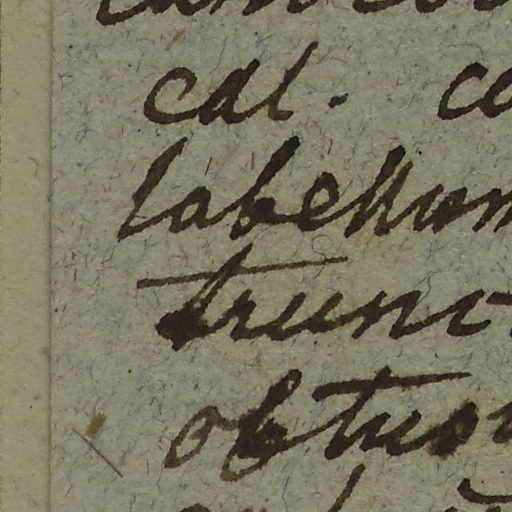 cal. co
labellum
trunc
obtus